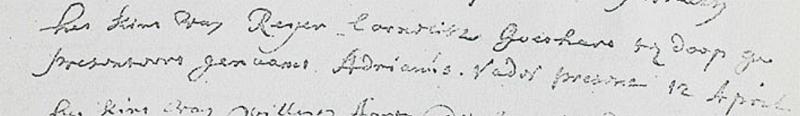 het kint van Reyer Cornelisz Goeshart tȳ doop ge
presenteert genaamt Adrianus. Vader present 12 April
het kint van Willem